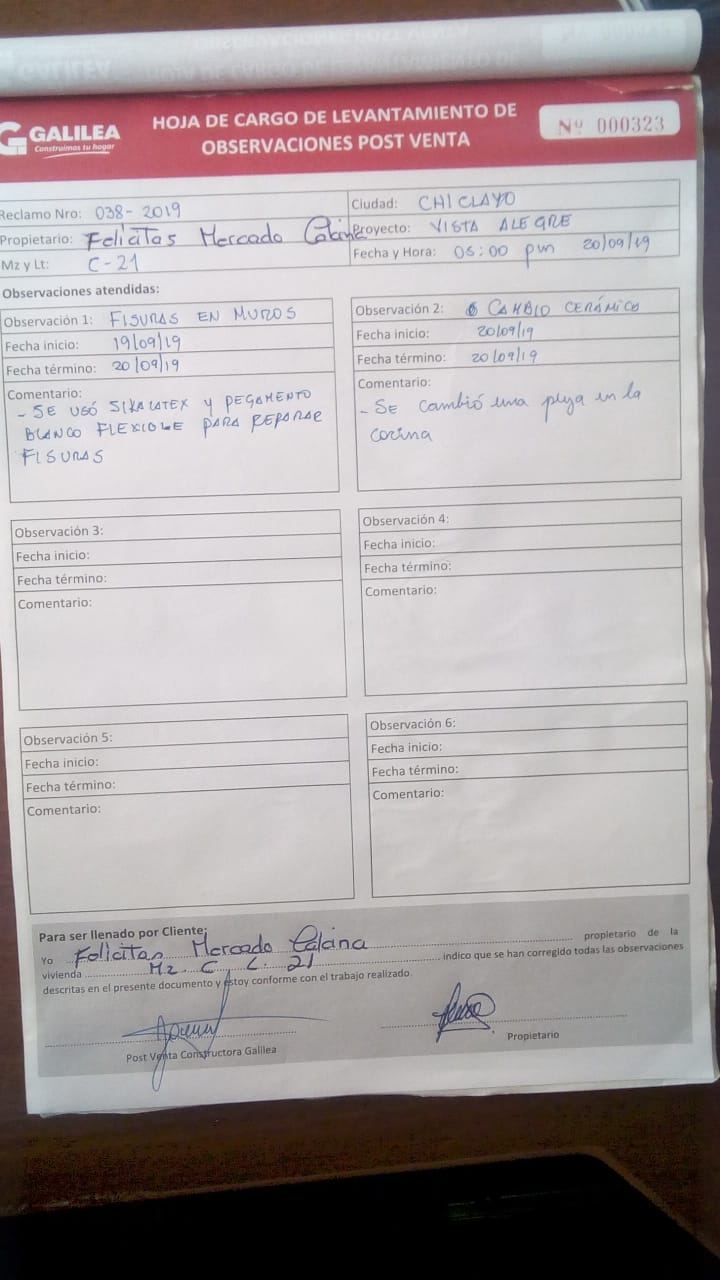 GALILEA
Construimos tu hogar
HOJA DE CARGO DE LEVANTAMIENTO DE
OBSERVACIONES POST VENTA
Nº 000323
Reclamo Nro: 038-2019
Ciudad: CHICLAYO
Propietario: Felicitas Mercado Calcina
Proyecto: VISTA ALEGRE
Mz y Lt: C-21
Fecha y Hora: 05:00 pm 20/09/19
Observaciones atendidas:
Observación 1: FISURAS EN MUROS
Fecha inicio: 19/09/19
Fecha término: 20/09/19
Comentario:
- SE USÓ SIKALATEX Y PEGAMENTO
BLANCO FLEXIBLE PARA REPARAR
FISURAS
Observación 2: CAMBIO CERÁMICO
Fecha inicio: 20/09/19
Fecha término: 20/09/19
Comentario:
- Se cambió una pieza en la
cocina
Observación 3:
Fecha inicio:
Fecha término:
Comentario:
Observación 4:
Fecha inicio:
Fecha término:
Comentario:
Observación 5:
Fecha inicio:
Fecha término:
Comentario:
Observación 6:
Fecha inicio:
Fecha término:
Comentario:
Para ser llenado por Cliente:
Yo Felicitas Mercado Calcina propietario de la
vivienda Mz. C L. 21 indico que se han corregido todas las observaciones
descritas en el presente documento y estoy conforme con el trabajo realizado.
Post Venta Constructora Galilea
Propietario